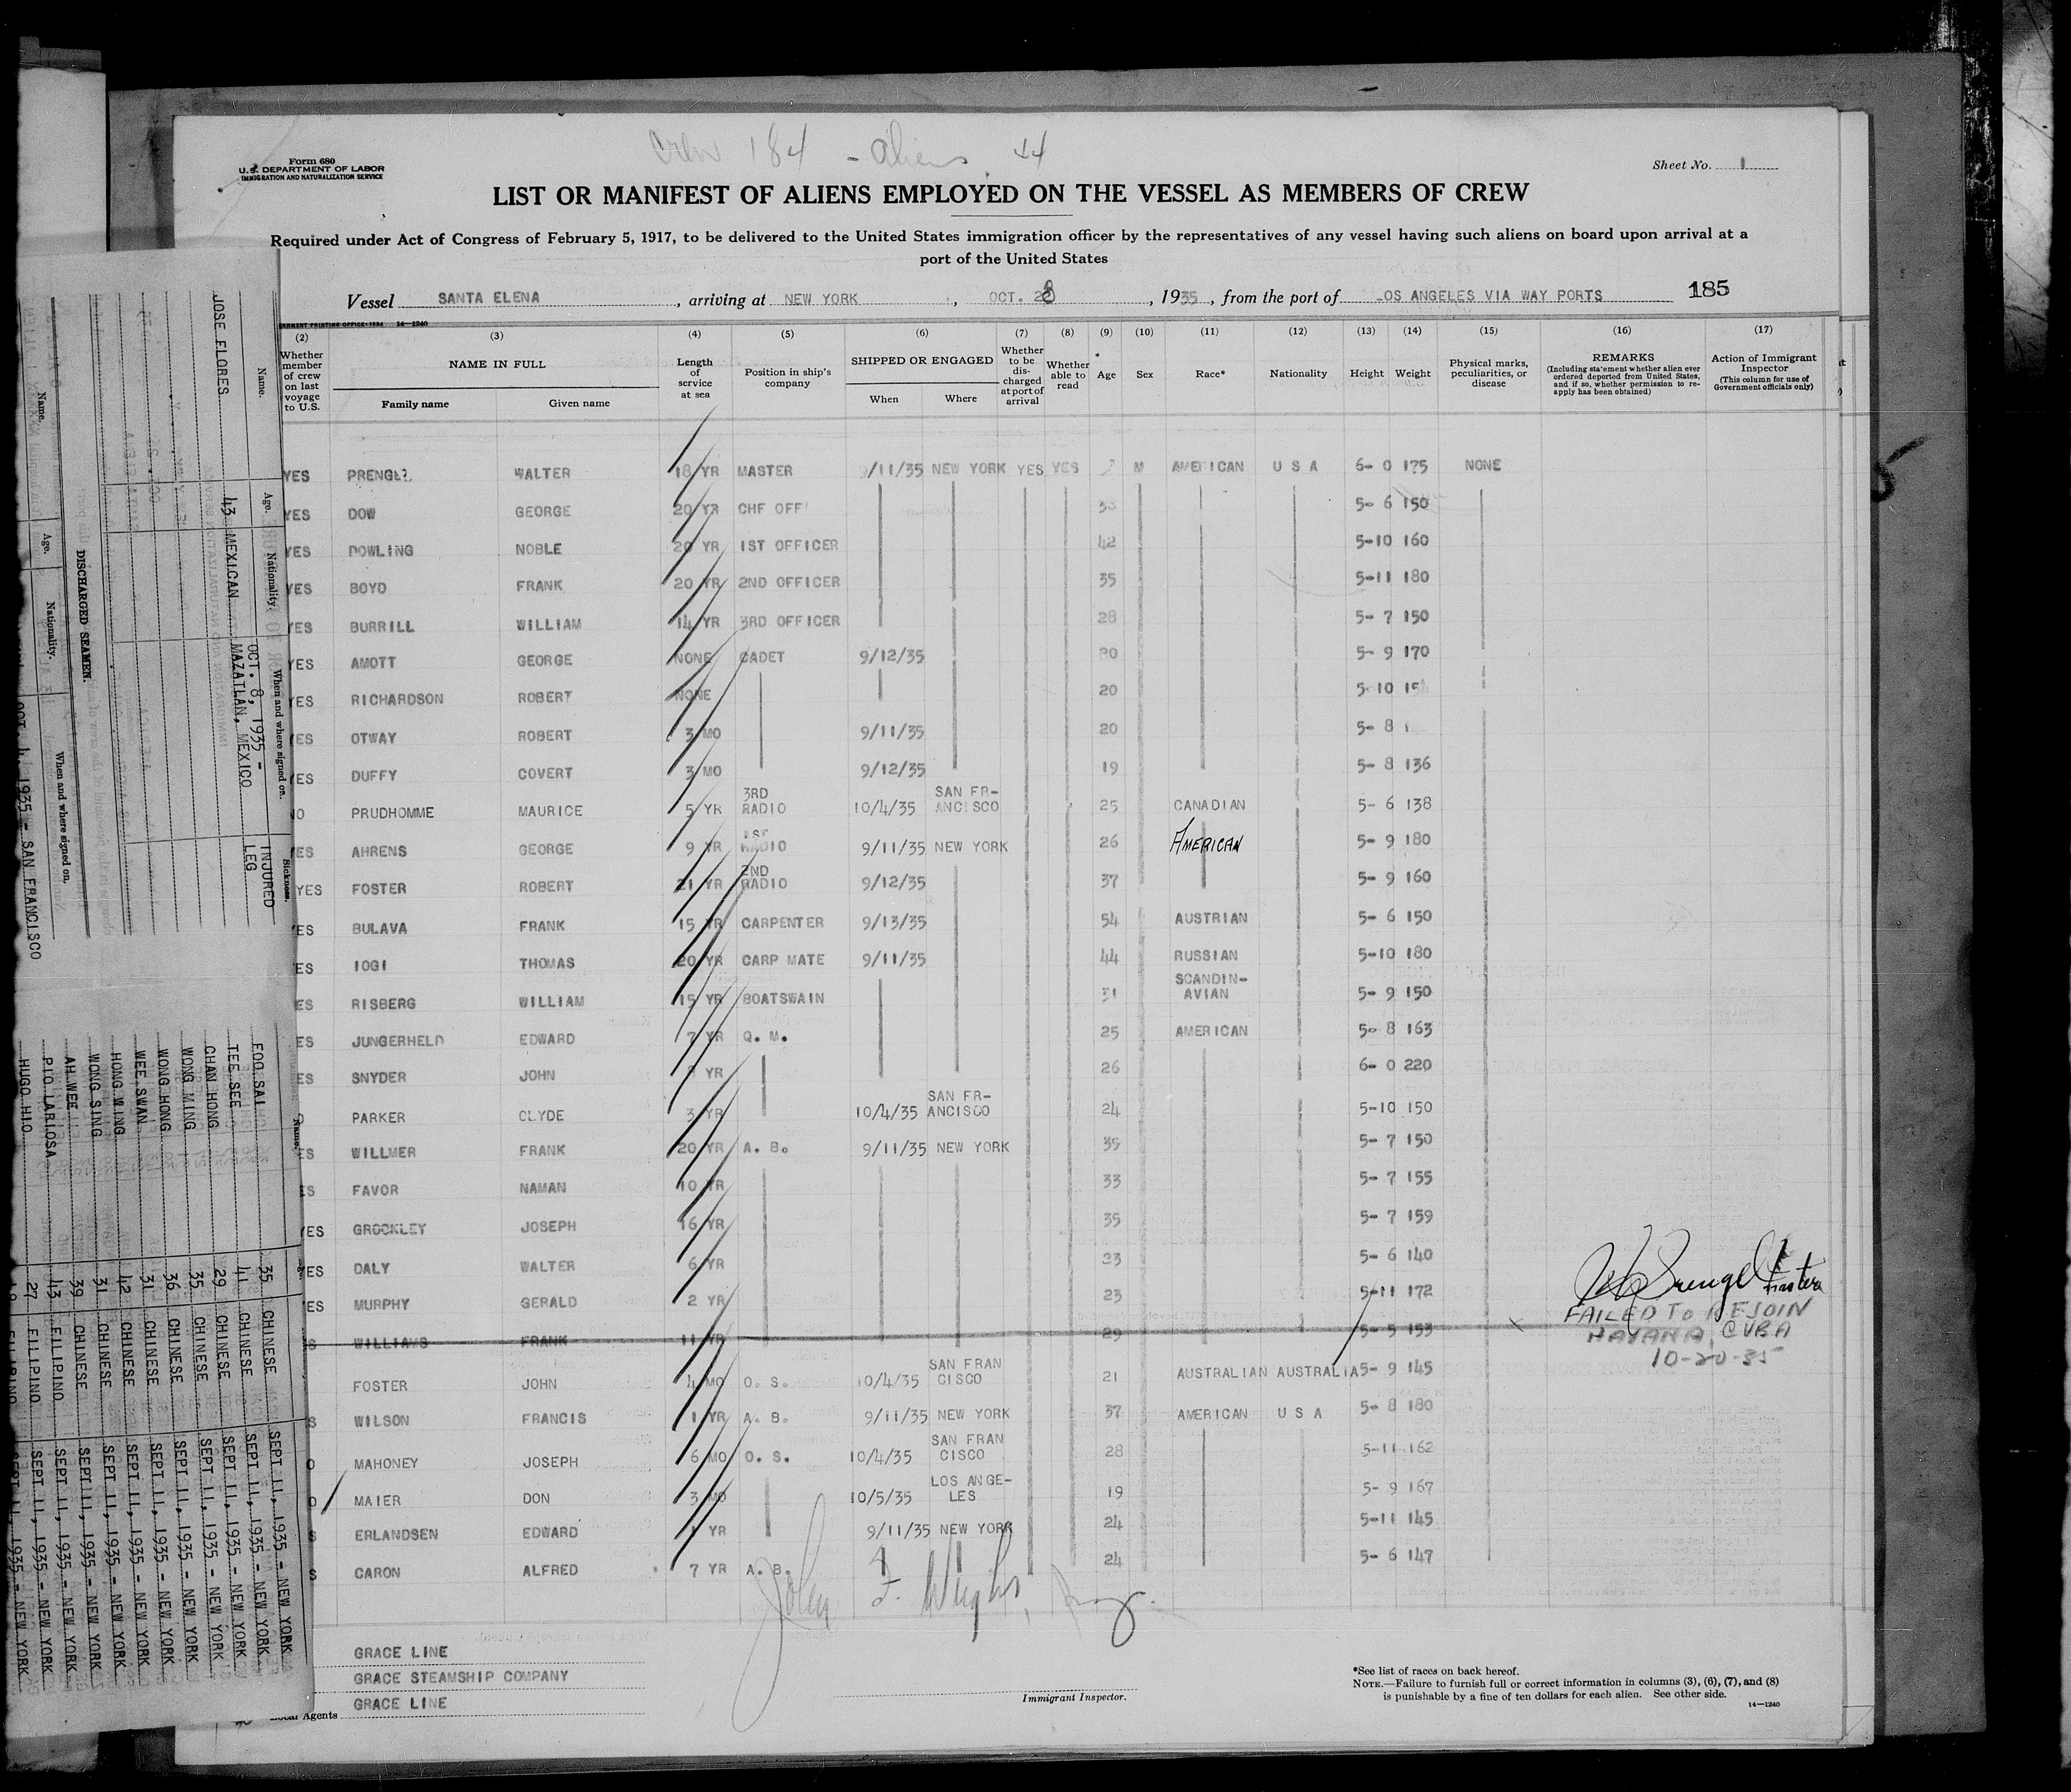 Crew 184 - aliens 44
Form 680
U.S. DEPARTMENT OF LABOR
IMMIGRATION AND NATURALIZATION SERVICE
Sheet No. 1
LIST OR MANIFEST OF ALIENS EMPLOYED ON THE VESSEL AS MEMBERS OF CREW
Required under Act of Congress of February 5, 1917, to be delivered to the United States immigration officer by the representatives of any vessel having such aliens on board upon arrival at a
port of the United States
Vessel SANTA ELENA, arriving at NEW YORK, OCT. 28, 1935, from the port of LOS ANGELES VIA WAY PORTS 185
14—1240
(2) (3) (4) (5) (6) (7) (8) (9) (10) (11) (12) (13) (14) (15) (16) (17)
Whether member of crew on last voyage to U.S.
NAME IN FULL
Family name
Given name
Length of service at sea
Position in ship's company
SHIPPED OR ENGAGED
When
Where
Whether to be discharged at port of arrival
Whether able to read
Age
Sex
Race*
Nationality
Height
Weight
Physical marks, peculiarities, or disease
REMARKS
(Including statement whether alien ever ordered deported from United States, and if so, whether permission to reapply has been obtained)
Action of Immigrant Inspector
(This column for use of Government officials only)
YES PRENGEL WALTER 18 YR MASTER 9/11/35 NEW YORK YES YES M AMERICAN U S A 6- 0 175 NONE
YES DOW GEORGE 20 YR CHF OFF 5- 6 150
YES DOWLING NOBLE 20 YR 1ST OFFICER 42 5-10 160
YES BOYD FRANK 20 YR 2ND OFFICER 35 5-11 180
YES BURRILL WILLIAM 14 YR 3RD OFFICER 28 5- 7 150
YES AMOTT GEORGE NONE CADET 9/12/35 20 5- 9 170
YES RICHARDSON ROBERT NONE 20 5-10
YES OTWAY ROBERT 3 MO 9/11/35 20 5- 8
YES DUFFY COVERT 3 MO 9/12/35 19 5- 8 136
NO PRUDHOMME MAURICE 5 YR 3RD RADIO 10/4/35 SAN FR-ANCISCO 25 CANADIAN 5- 6 138
YES AHRENS GEORGE 9 YR 1ST RADIO 9/11/35 NEW YORK 26 AMERICAN 5- 9 180
YES FOSTER ROBERT 21 YR 2ND RADIO 9/12/35 37 5- 9 160
YES BULAVA FRANK 15 YR CARPENTER 9/13/35 54 AUSTRIAN 5- 6 150
ES IOGI THOMAS 20 YR CARP MATE 9/11/35 44 RUSSIAN 5-10 180
ES RISBERG WILLIAM 15 YR BOATSWAIN 31 SCANDIN-AVIAN 5- 9 150
ES JUNGERHELD EDWARD 7 YR Q. M. 25 AMERICAN 5- 8 163
ES SNYDER JOHN YR 26 6- 0 220
O PARKER CLYDE 3 YR 10/4/35 SAN FR-ANCISCO 24 5-10 150
ES WILLMER FRANK 20 YR A. B. 9/11/35 NEW YORK 39 5- 7 150
ES FAVOR NAMAN 10 YR 33 5- 7 155
YES GROCKLEY JOSEPH 16 YR 35 5- 7 159
ES DALY WALTER 6 YR 23 5- 6 140
ES MURPHY GERALD 2 YR 23 5-11 172
S WILLIAMS FRANK 11 YR 29 5- 5 153
FAILED TO REJOIN
HAVANA, CUBA
10-20-35
FOSTER JOHN 4 MO O. S. 10/4/35 SAN FRAN CISCO 21 AUSTRALIAN AUSTRALIA 5- 9 145
S WILSON FRANCIS 1 YR A. B. 9/11/35 NEW YORK 37 AMERICAN U S A 5- 8 180
O MAHONEY JOSEPH 6 MO O. S. 10/4/35 SAN FRAN CISCO 28 5-11 162
O MAIER DON 3 MO 10/5/35 LOS ANGE-LES 19 5- 9 167
S ERLANDSEN EDWARD 1 YR 9/11/35 NEW YORK 24 5-11 145
S CARON ALFRED 7 YR A. B. 24 5- 6 147
GRACE LINE
GRACE STEAMSHIP COMPANY
GRACE LINE
Local Agents
Immigrant Inspector.
*See list of races on back hereof.
NOTE.—Failure to furnish full or correct information in columns (3), (6), (7), and (8)
is punishable by a fine of ten dollars for each alien. See other side.
14—1240
Name. Age. Nationality. When and where signed on. Sickness.
JOSE FLORES 43 MEXICAN OCT. 8, 1935 - MAZATLAN, MEXICO INJURED LEG
DISCHARGED SEAMEN.
Name. Age. Nationality. When and where signed on.
OCT. 4, 1935 - SAN FRANCISCO
FOO SAI 35 CHINESE SEPT 11, 1935 - NEW YORK
TEE SEE 41 CHINESE SEPT 11, 1935 - NEW YORK
CHAN HONG 29 CHINESE SEPT 11, 1935 - NEW YORK
WONG MING 35 CHINESE SEPT 11, 1935 - NEW YORK
WONG HONG 36 CHINESE SEPT 11, 1935 - NEW YORK
WEE SWAN 31 CHINESE SEPT 11, 1935 - NEW YORK
HONG WING 42 CHINESE SEPT 11, 1935 - NEW YORK
WONG SING 31 CHINESE SEPT 11, 1935 - NEW YORK
AH WEE 39 CHINESE SEPT 11, 1935 - NEW YORK
PIO LARIOSA 43 FILIPINO SEPT 11, 1935 - NEW YORK
HUGO HILO 27 FILIPINO SEPT 11, 1935 - NEW YORK
FILIPINO SEPT 11, 1935 - NEW YORK